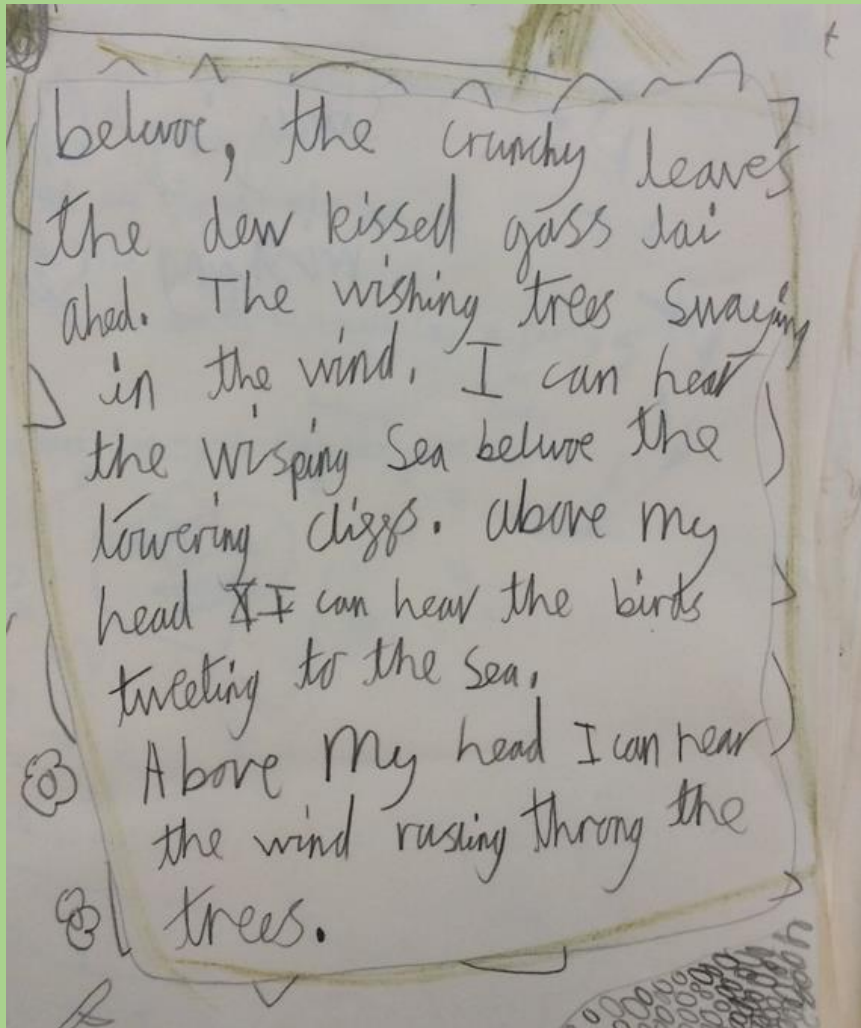 belwoe, the crunchy leaves
the dew kissed gass lai
ahed. The wishing trees swaying
in the wind. I can hear
the wisping Sea belwoe the
towering cliggs. above my
head I can hear the birds
tweeting to the sea.
Above my head I can hear
the wind rusling throng the
trees.